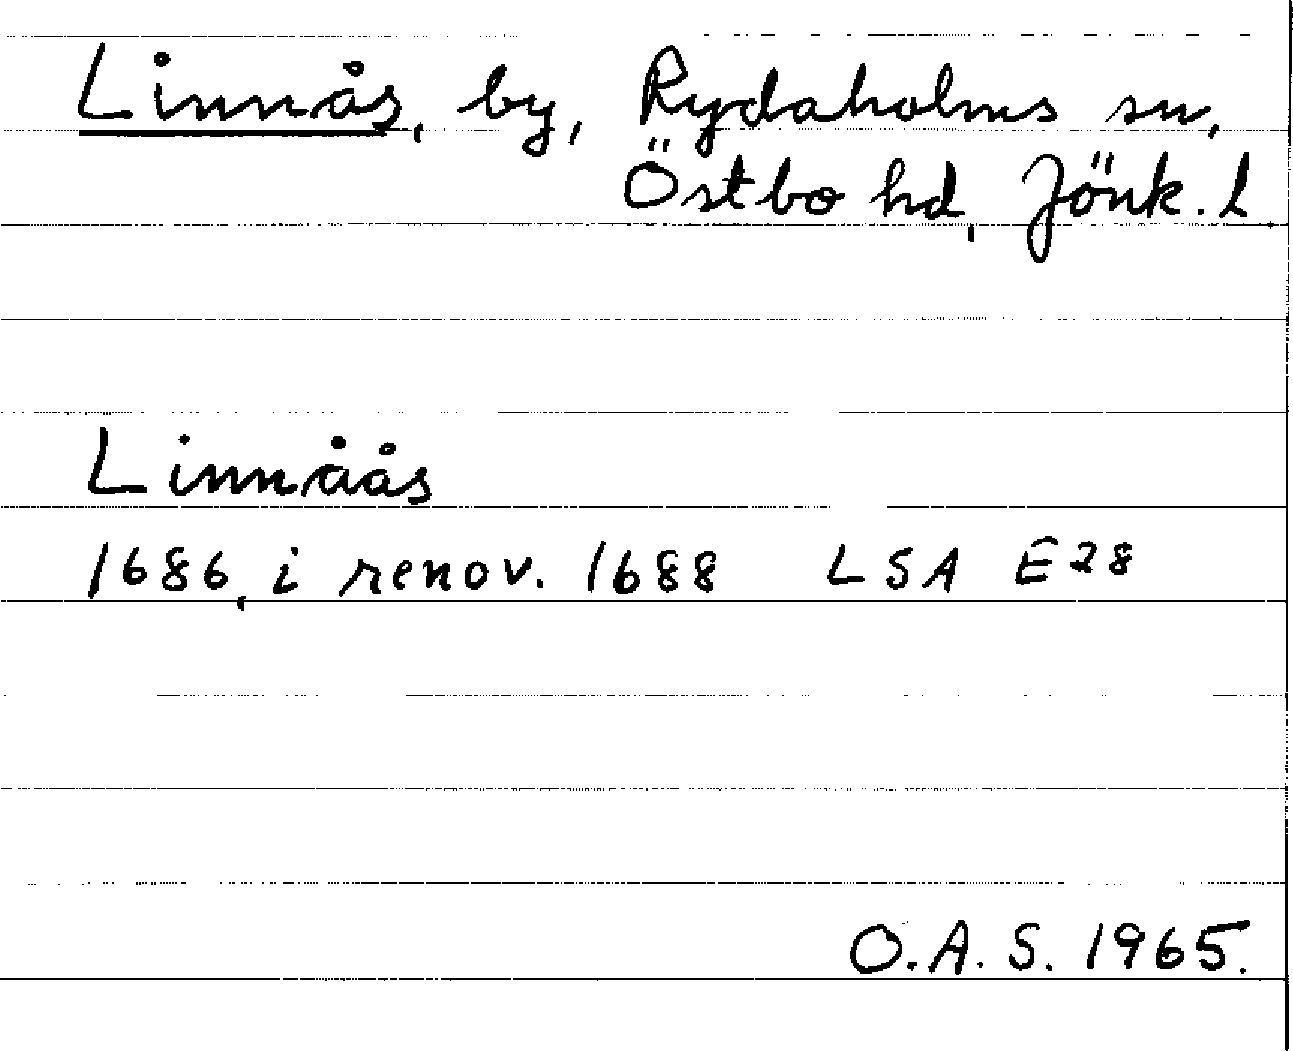 Linnås, by, Rydaholms sn,
Östbo hd, Jönk. l.
Linnåås
1686, i renov. 1688 LSA E28
O.A.S. 1965.